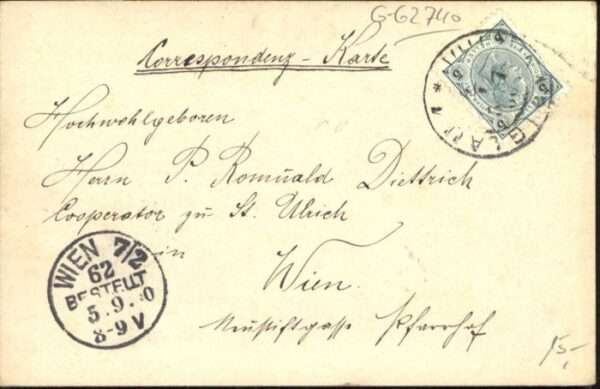 G-62740
Correspondenz-Karte
Hochwohlgeboren
Herrn P. Romuald Diettrich
Cooperator zu St. Ulrich
in
Wien.
Neustiftgasse Pfarrhof
WIEN 7/2
62
BESTELLT
5.9.0
8-9V
IGLAU
15,-